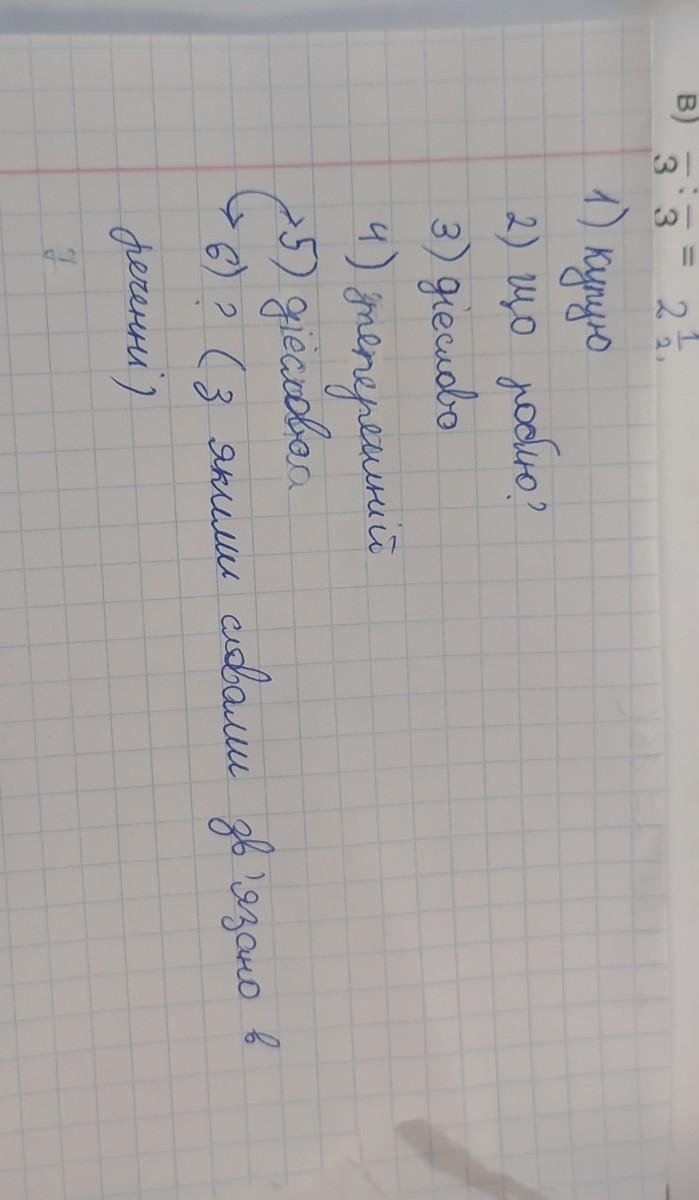 в) 3 : 3 = 2 1/2,
1) купую
2) що роблю?
3) дієслово
4) теперешній
5) дієслово
6) ? (з якими словами зв'язано в
реченні)